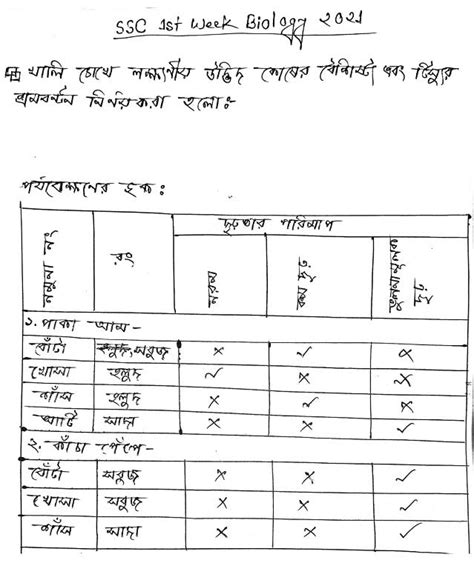 SSC 1st Week Biology 2021
খালি চোখে লক্ষণীয় উদ্ভিদ কোষের বৈশিষ্ট্য এবং টিস্যুর
শ্রমবন্টন নির্ণয় করা হলো:-
পর্যবেক্ষনের ছক:
নমুনা নং রং দৃঢ়তার পরিমাপ
নরম কম দৃঢ় তুলনামূলক দৃঢ়
১. পাকা আম -
বোঁটা হলুদ, সবুজ × ✓ ×
খোসা হলুদ ✓ × ×
শাঁস হলুদ × ✓ ×
আটি সাদা × × ✓
২. কাঁচা পেঁপে -
বোঁটা সবুজ × × ✓
খোসা সবুজ × × ✓
শাঁস সাদা × × ✓